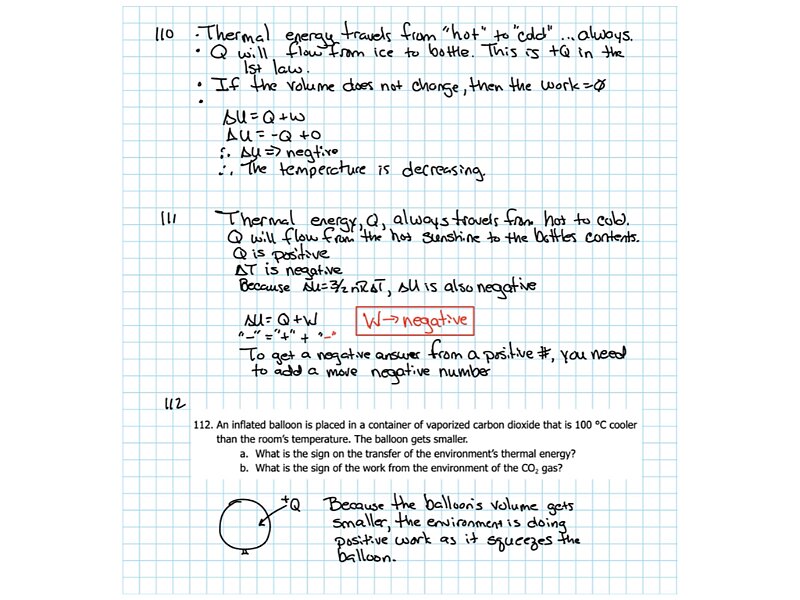 110 · Thermal energy travels from "hot" to "cold" ... always.
• Q will flow from ice to bottle. This is +Q in the
1st law.
• If the volume does not change, then the work = Ø
•
ΔU = Q + W
ΔU = -Q + 0
∴ ΔU ⇒ negtive
∴ The temperature is decreasing.
111 Thermal energy, Q, always travels from hot to cold.
Q will flow from the hot sunshine to the bottles contents.
Q is positive
ΔT is negative
Because ΔU = 3/2 nRΔT, ΔU is also negative
ΔU = Q + W W → negative
"-" = "+" + "-"
To get a negative answer from a positive #, you need
to add a more negative number
112
112. An inflated balloon is placed in a container of vaporized carbon dioxide that is 100 °C cooler
than the room's temperature. The balloon gets smaller.
a. What is the sign on the transfer of the environment's thermal energy?
b. What is the sign of the work from the environment of the CO₂ gas?
+Q Because the balloon's volume gets
smaller, the environment is doing
positive work as it squeezes the
balloon.